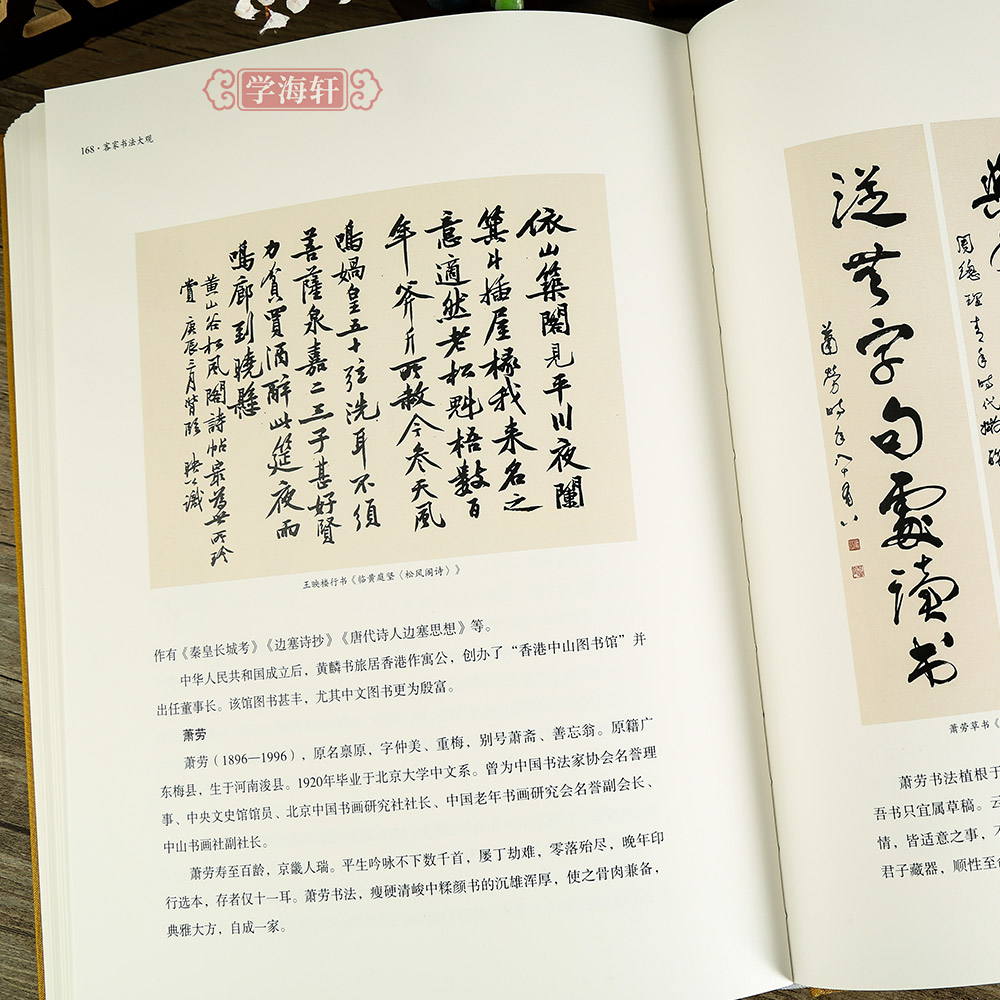 学海轩
168·客家书法大观
依山築閣見平川夜闌
箕斗插屋椽我来名之
意適然老松魁梧数百
年斧斤所赦今参天風
鳴媧皇五十弦洗耳不須
菩薩泉嘉二三子甚好賢
力贫買酒醉此筵夜雨
鳴廊到曉懸
黄山谷松風閣詩帖最为世所珍
賞庚辰三月
王映楼行书《临黄庭坚〈松风阁诗〉》
作有《秦皇长城考》《边塞诗抄》《唐代诗人边塞思想》等。
中华人民共和国成立后，黄麟书旅居香港作寓公，创办了“香港中山图书馆”并
出任董事长。该馆图书甚丰，尤其中文图书更为殷富。
萧劳
萧劳（1896—1996），原名禀原，字仲美、重梅，别号萧斋、善忘翁。原籍广
东梅县，生于河南浚县。1920年毕业于北京大学中文系。曾为中国书法家协会名誉理
事、中央文史馆馆员、北京中国书画研究社社长、中国老年书画研究会名誉副会长、
中山书画社副社长。
萧劳寿至百龄，京畿人瑞。平生吟咏不下数千首，屡丁劫难，零落殆尽，晚年印
行选本，存者仅十一耳。萧劳书法，瘦硬清峻中糅颜书的沉雄浑厚，使之骨肉兼备，
典雅大方，自成一家。
周總理青年時代
從無字句處读书
蕭勞時年八十有八
萧劳草书《
萧劳书法植根于
吾书只宜属草稿。云
情，皆适意之事，不
君子藏器，顺性至